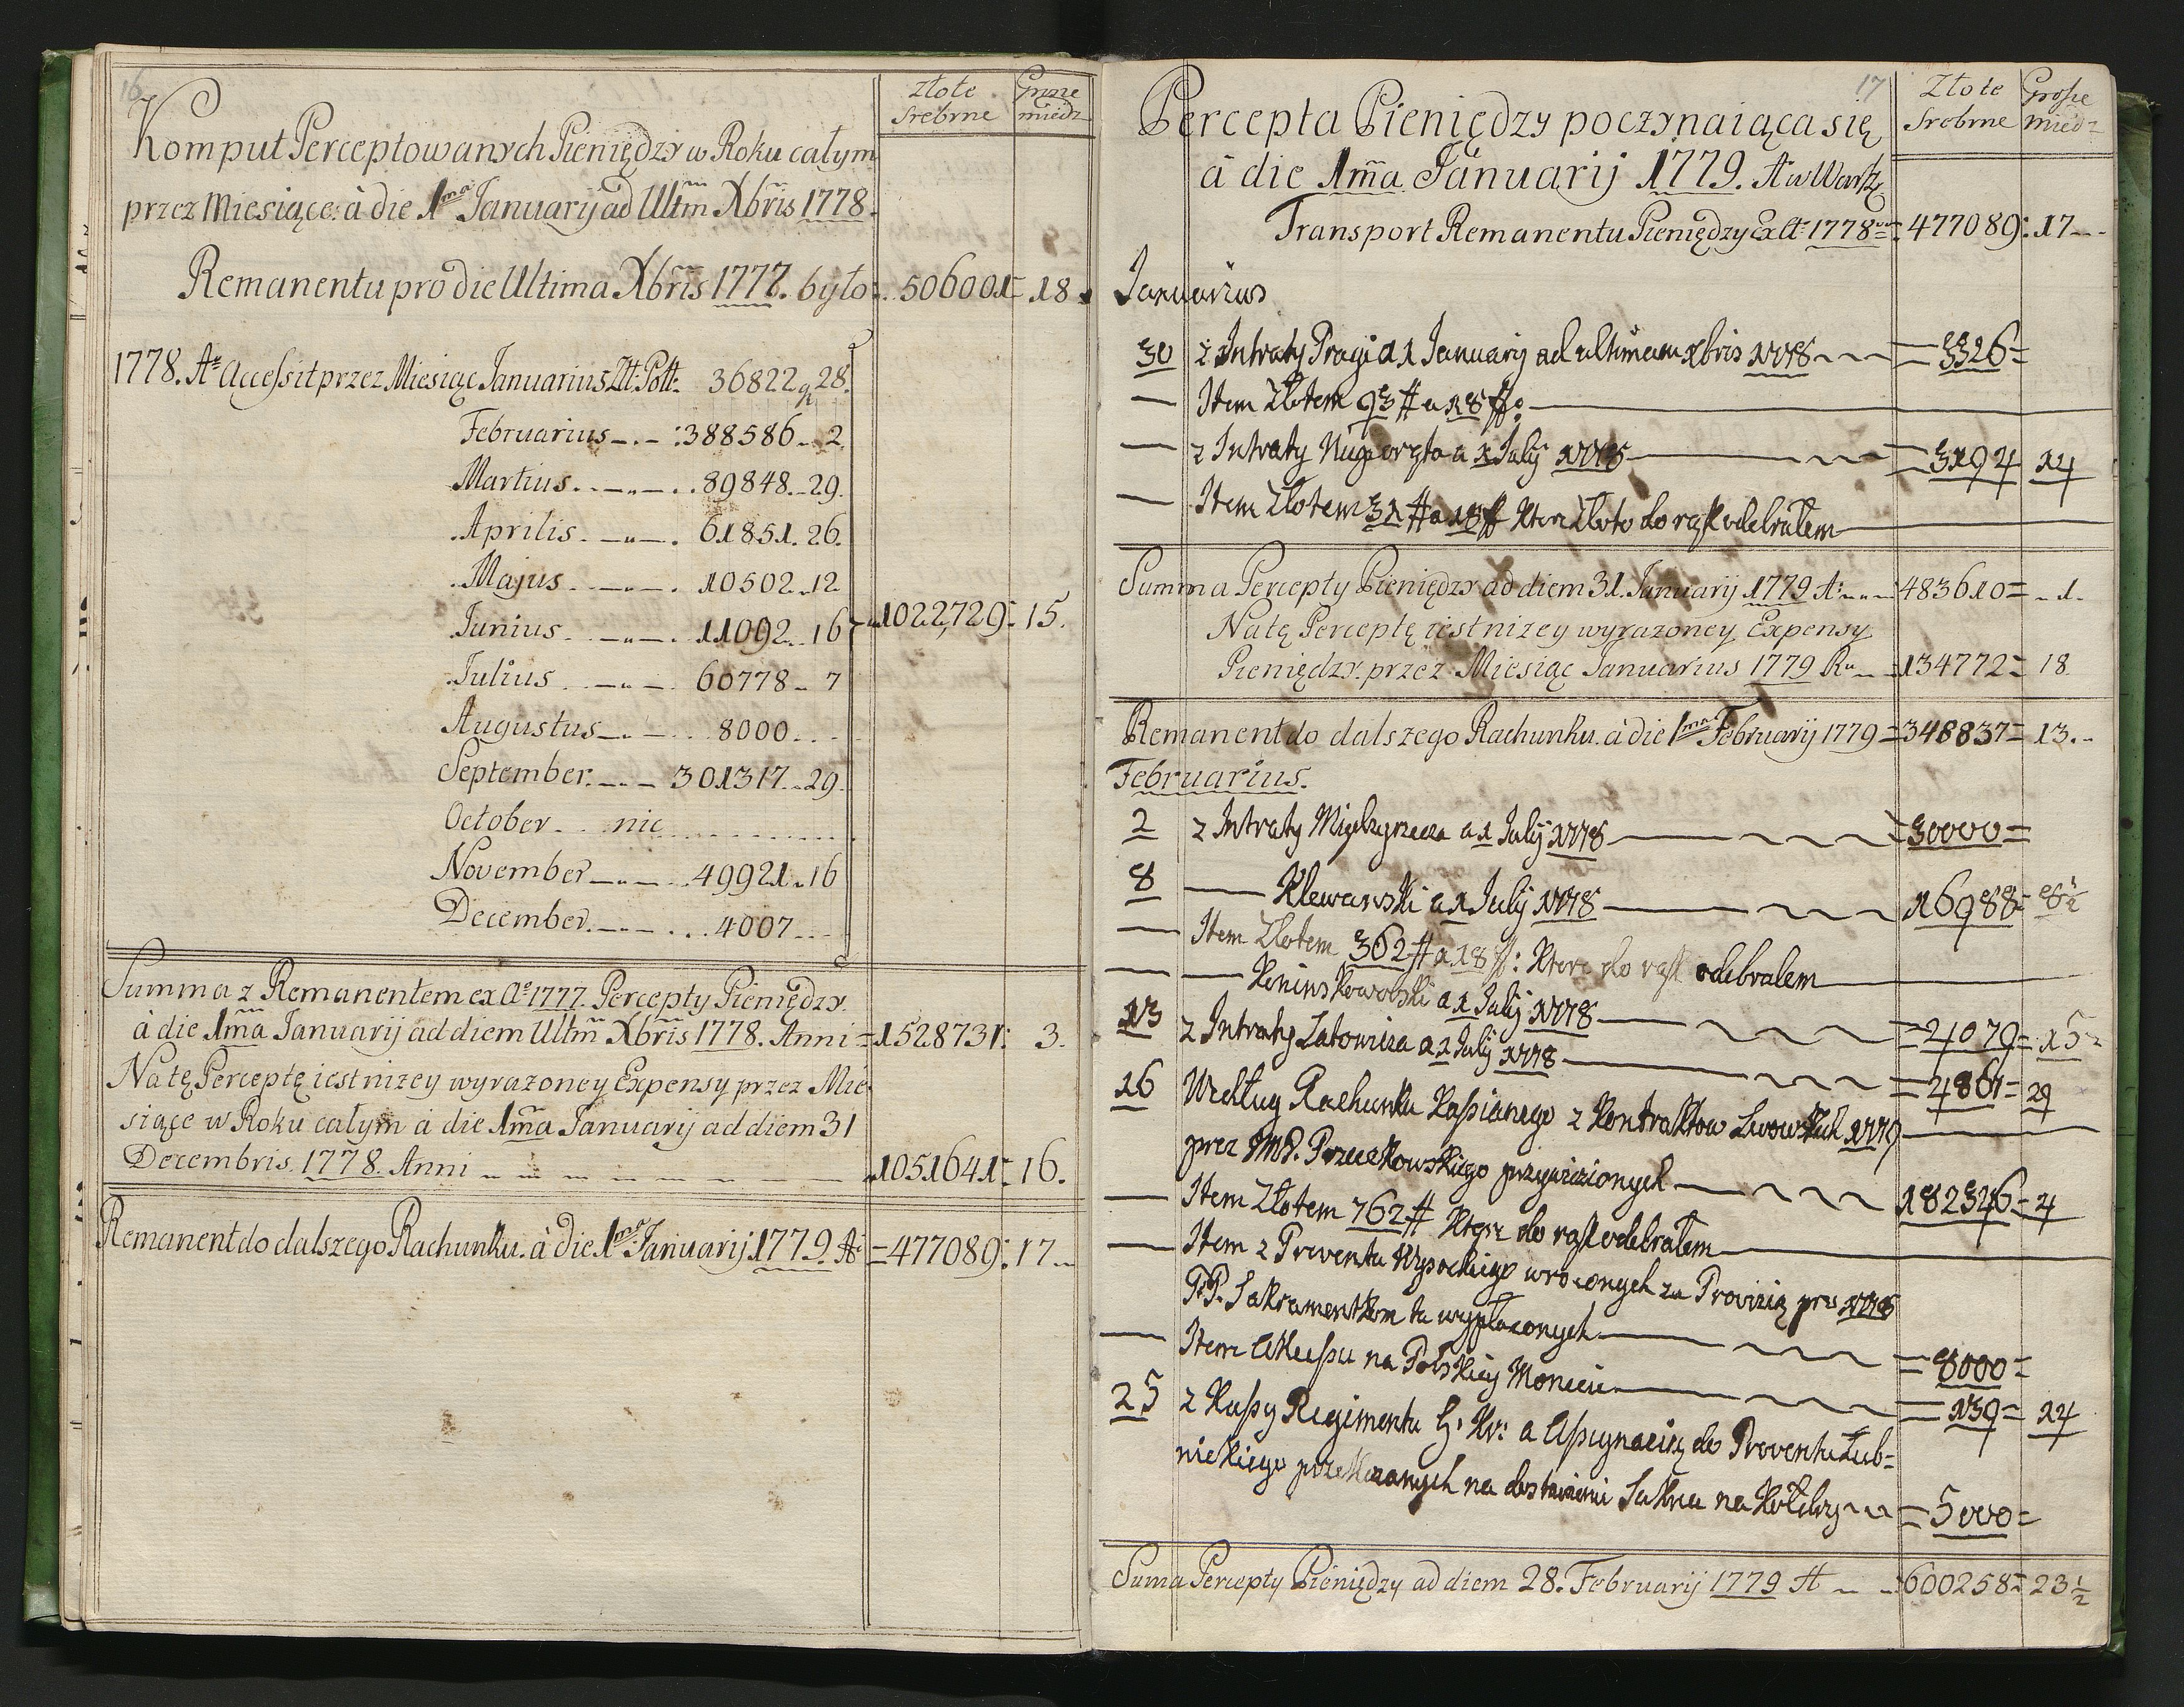 16
Złote Grosze
Srebrne miedz
Komput Perceptowanych Pieniędzy w Roku całym
przez Miesiące: à die 1ma Januarij ad Ultm Xbris 1778.
Remanentu pro die Ultima Xbris 1777. było 506001 = 18
1778. Ao Accessit przez Miesiąc Januarius Zlt: Poll: 36822 g 28.
Februarius 388586 .. 2.
Martius 89848 .. 29.
Aprilis 61851. 26.
Majus 10502 .. 12.
Junius 11092 .. 16
1022,729 = 15.
Julius 60778 .. 7
Augustus 8000
September 301317 .. 29.
October .. nic
November 49921 .. 16
December 4007
Summa z Remanentem ex Ao 1777. Percepty Pieniędzy
à die 1ma Januarij ad diem Ultm Xbris 1778. Anni = 1528731: 3.
Na tę Perceptę iest niżey wyrażoney Expensy przez Mie-
siące w Roku całym à die 1ma Januarij ad diem 31
Decembris 1778. Anni 1051641 = 16.
Remanent do dalszego Rachunku. à die 1ma Januarij 1779. Ai = 477089: 17
17
Złote Grosze
Srebrne miedz
Percepta Pieniędzy poczynaiąca się
à die 1ma Januarij 1779. A w Warsz
Transport Remanentu Pieniędzy Ex Ao 1778 = 477089: 17
Januarius
30 z Intraty Pragi a 1 Januarij ad ultimam xbris 1778 = 3326 =
Item Złotem 93 # a 18 ff:
z Intraty a 1 July 1778 = 3194 14
Item Złotem 31 # a 18 ff które złoto do rąk odebrałem
Summa Percepty Pieniędzy ad diem 31. Januarij 1779 A: 483610 = .. 1.
Na tę Perceptę iest niżey wyrażoney Expensy
Pieniędzy przez Miesiąc Januarius 1779 Ru 134772 = 18
Remanent do dalszego Rachunku. à die 1ma Februarij 1779 = 348837 = 13.
Februarius.
2 z Intraty Międzyrzecza a 1 July 1778 = 30000 =
8 Klewański a 1 July 1778 16988 = 8 1/2
Item Złotem 362 # a 18 ff: które do rąk odebrałem
a 1 July 1778 = 21079 = 15
13 z Intraty Latowicza a 1 July 1778 = 4861 = 29
16 Według Rachunku Kassianego z Kontraktow Lwowskich 1779
prez MP. przywiezionych 182346 = 4
Item Złotem 762 # które do rąk odebrałem
Item z Proventu Wysockiego wroconych za Prowizią pro 1778
PP. Sakramentkom tu wypłaconych = 8000 =
Item Akcessu na Polskiey Monecie = 139 = 14
25 z Kassy Regimentu G. Kr: a Assignacią do Proventu Łub=
nickiego przekazanych na dostawienie Sukna na Kołdry = 5000 =
Suma Percepty Pieniędzy ad diem 28. Februarij 1779 A 600258 = 23 1/2